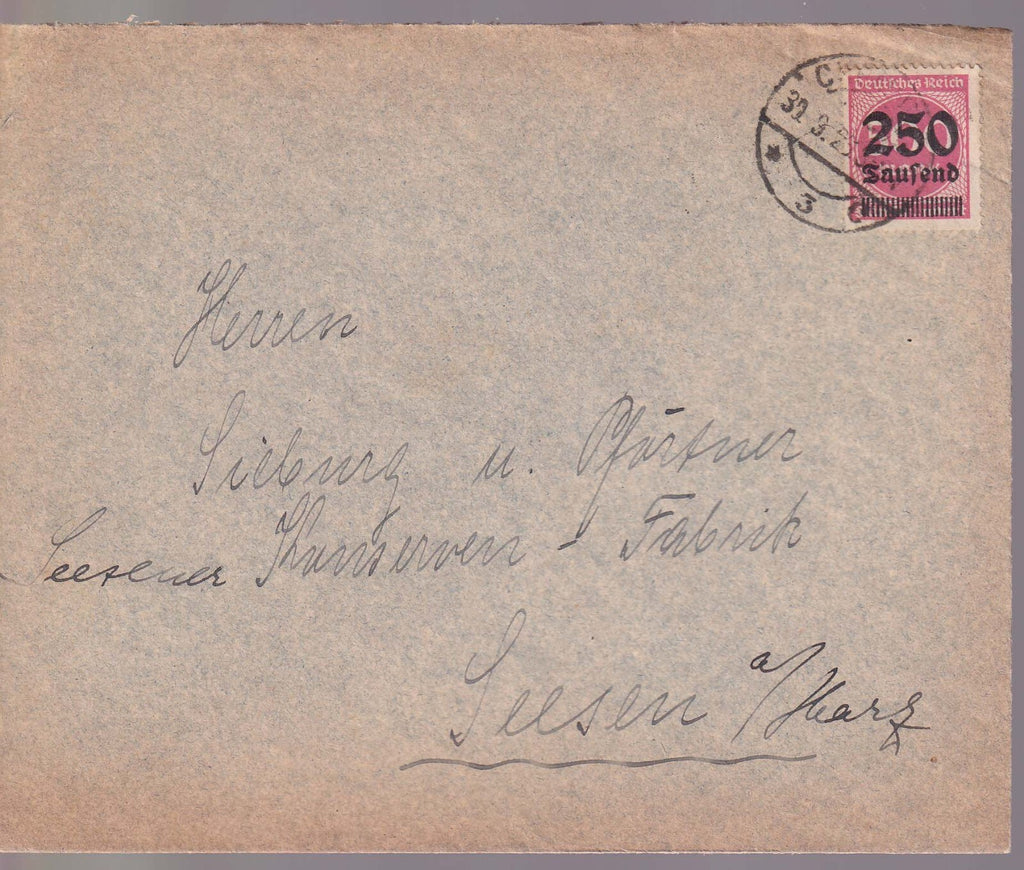 Deutsches Reich
250
Tausend
3
Herren
Sieburg u. Pförtner
Seesener Konserven-Fabrik
Seesen a/Harz